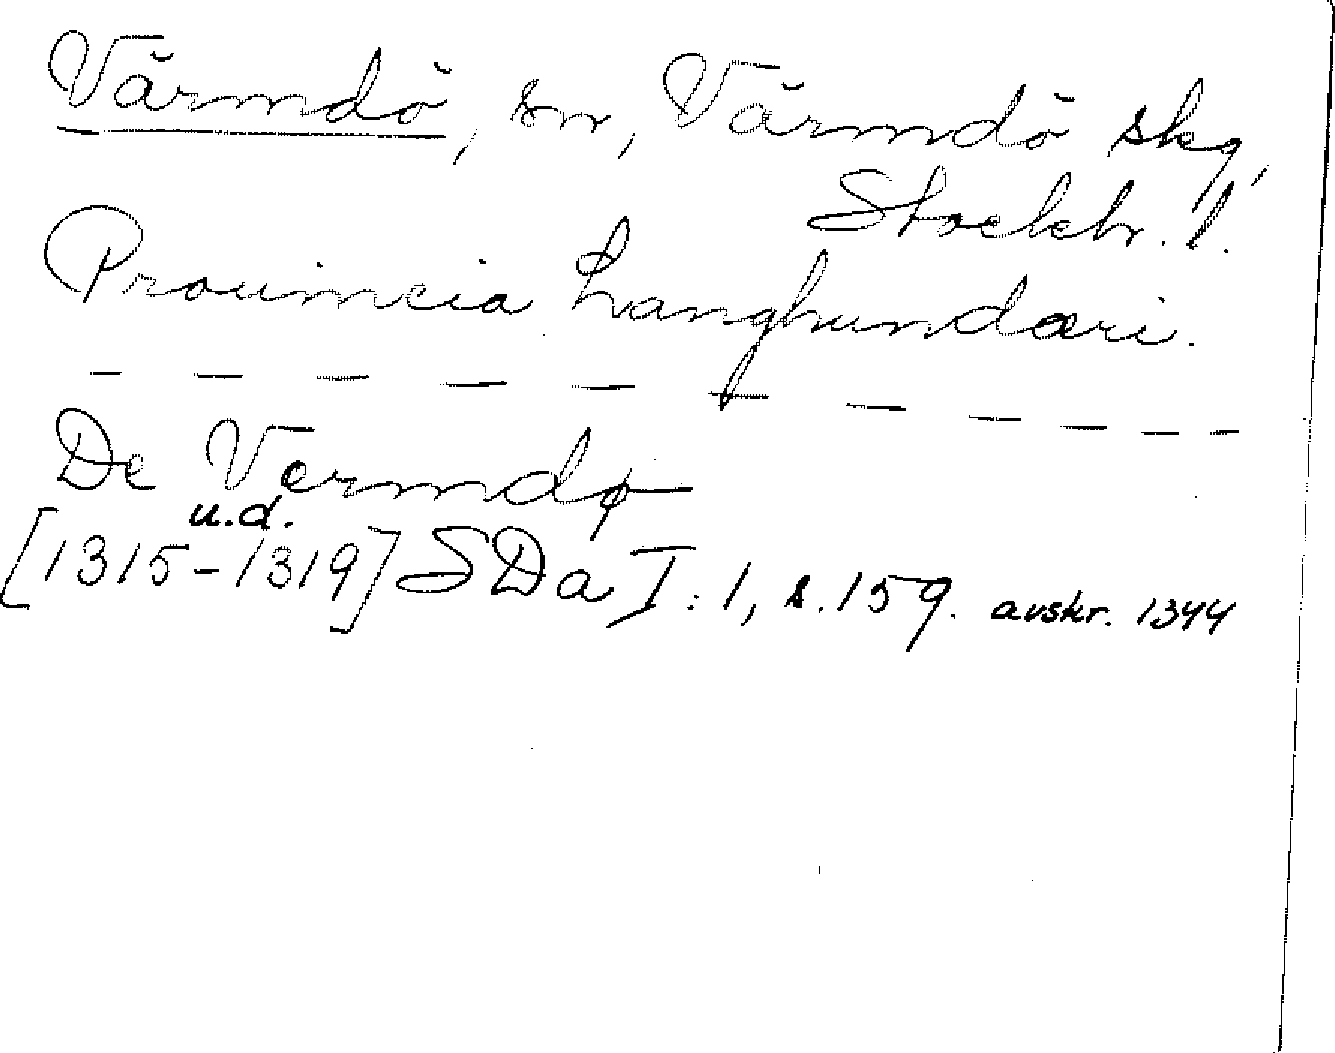 Värmdö, sn, Värmdö skg,
Stockh. l.
Prouincia Langhundari.
— — — — — — — — — —
De Vermdø
u.d.
[1315-1319] SDa I:1, s. 159. avskr. 1344